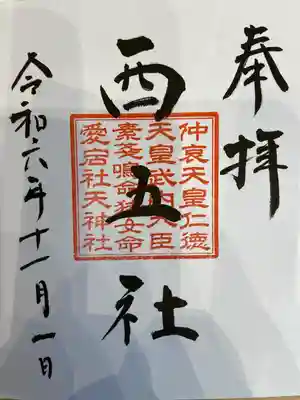 奉拝
西五社
仲哀天皇仁徳
天皇武内大臣
素戔嗚命猿女命
愛宕社天神社
令和六年十一月一日